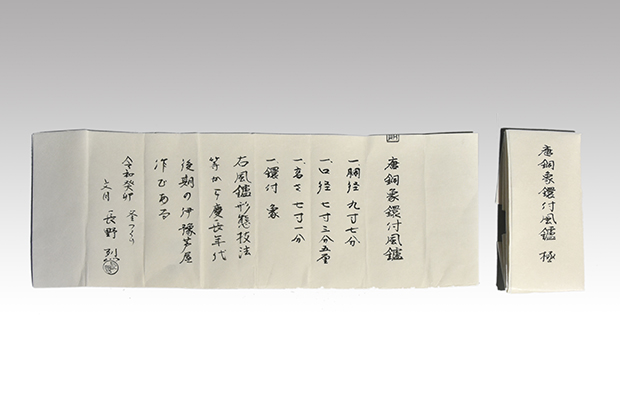 唐銅象鐶付風鑪 極
唐銅象鐶付風鑪
一.胴径 九寸七分
一.口径 七寸三分五厘
一.高さ 七寸一分
一.鐶付 象
右風鑪形態技法
等から慶長年代
後期の伊豫芦屋
作である
令和癸卯 釜つくり
文月 長野 烈